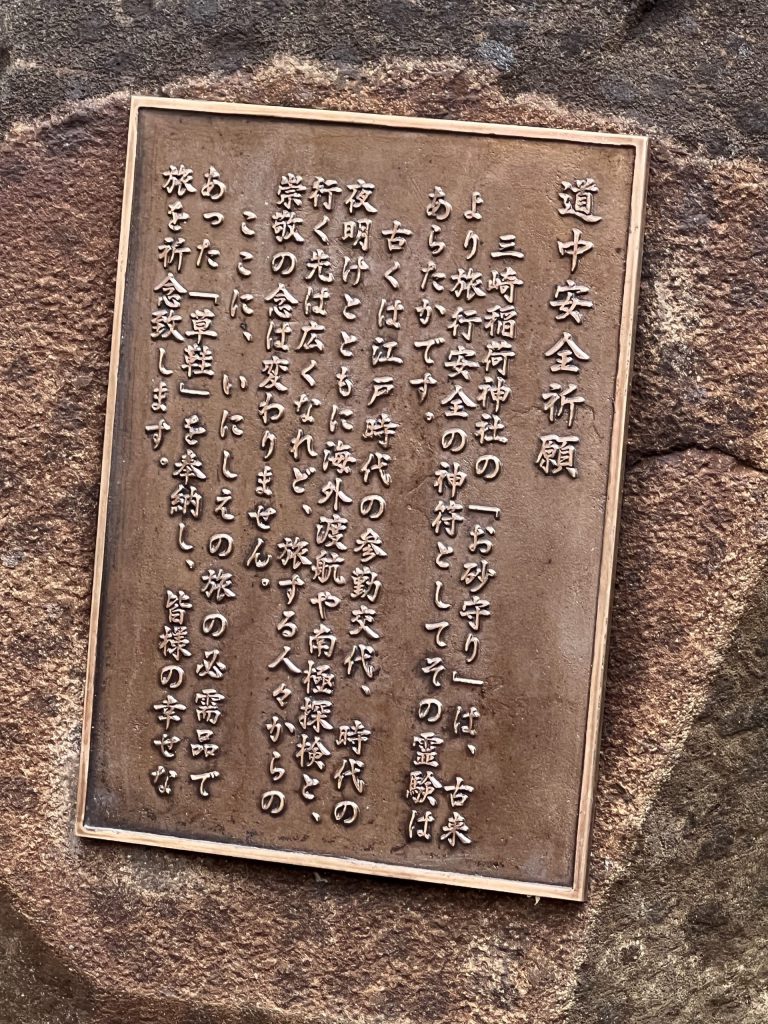 道中安全祈願
三崎稲荷神社の「お砂守り」は、古来
より旅行安全の神符としてその霊験は
あらたかです。
古くは江戸時代の参勤交代、時代の
夜明けとともに海外渡航や南極探検と、
行く先は広くなれど、旅する人々からの
崇敬の念は変わりません。
ここに、いにしえの旅の必需品で
あった「草鞋」を奉納し、皆様の幸せな
旅を祈念致します。